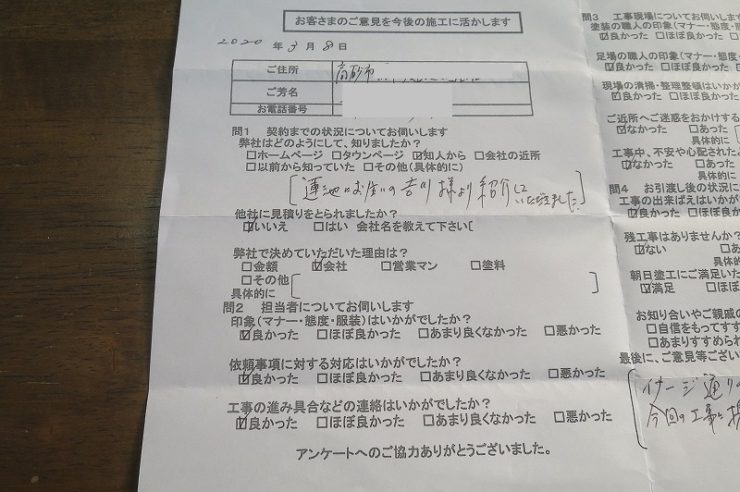 お客さまのご意見を今後の施工に活かします
2020 年 3 月 8 日
ご住所 高砂市
ご芳名
お電話番号
問1 契約までの状況についてお伺いします
弊社はどのようにして、知りましたか?
□ホームページ □タウンページ ☑知人から □会社の近所
□以前から知っていた □その他(具体的に)
[蓮池にお住いの吉川様より紹介していただきました。]
他社に見積りをとられましたか?
☑いいえ □はい 会社名を教えて下さい[
弊社で決めていただいた理由は?
□金額 ☑会社 □営業マン □塗料
□その他
具体的に
問2 担当者についてお伺いします
印象(マナー・態度・服装)はいかがでしたか?
☑良かった □ほぼ良かった □あまり良くなかった □悪かった
依頼事項に対する対応はいかがでしたか?
☑良かった □ほぼ良かった □あまり良くなかった □悪かった
工事の進み具合などの連絡はいかがでしたか?
☑良かった □ほぼ良かった □あまり良くなかった □悪かった
アンケートへのご協力ありがとうございました。
問3 工事現場についてお伺いしま
塗装の職人の印象(マナー・態度・
☑良かった □ほぼ良かった
足場の職人の印象(マナー・態度・
☑良かった □ほぼ良かった
現場の清掃・整理整頓はいかが
☑良かった □ほぼ良かった
ご近所へご迷惑をおかけする
☑なかった □あった
具体的に
工事中、不安や心配された
☑なかった □あった
具体的に
問4 お引渡し後の状況に
工事の出来ばえはいかが
☑良かった □ほぼ良か
残工事はありませんか?
☑ない □あ
具体的
朝日塗工にご満足いた
☑満足 □ほ
お知り合いやご親戚の
□自信をもってすす
□あまりすすめられ
最後に、ご意見等ござい
イメージ通りの
今回の工事で